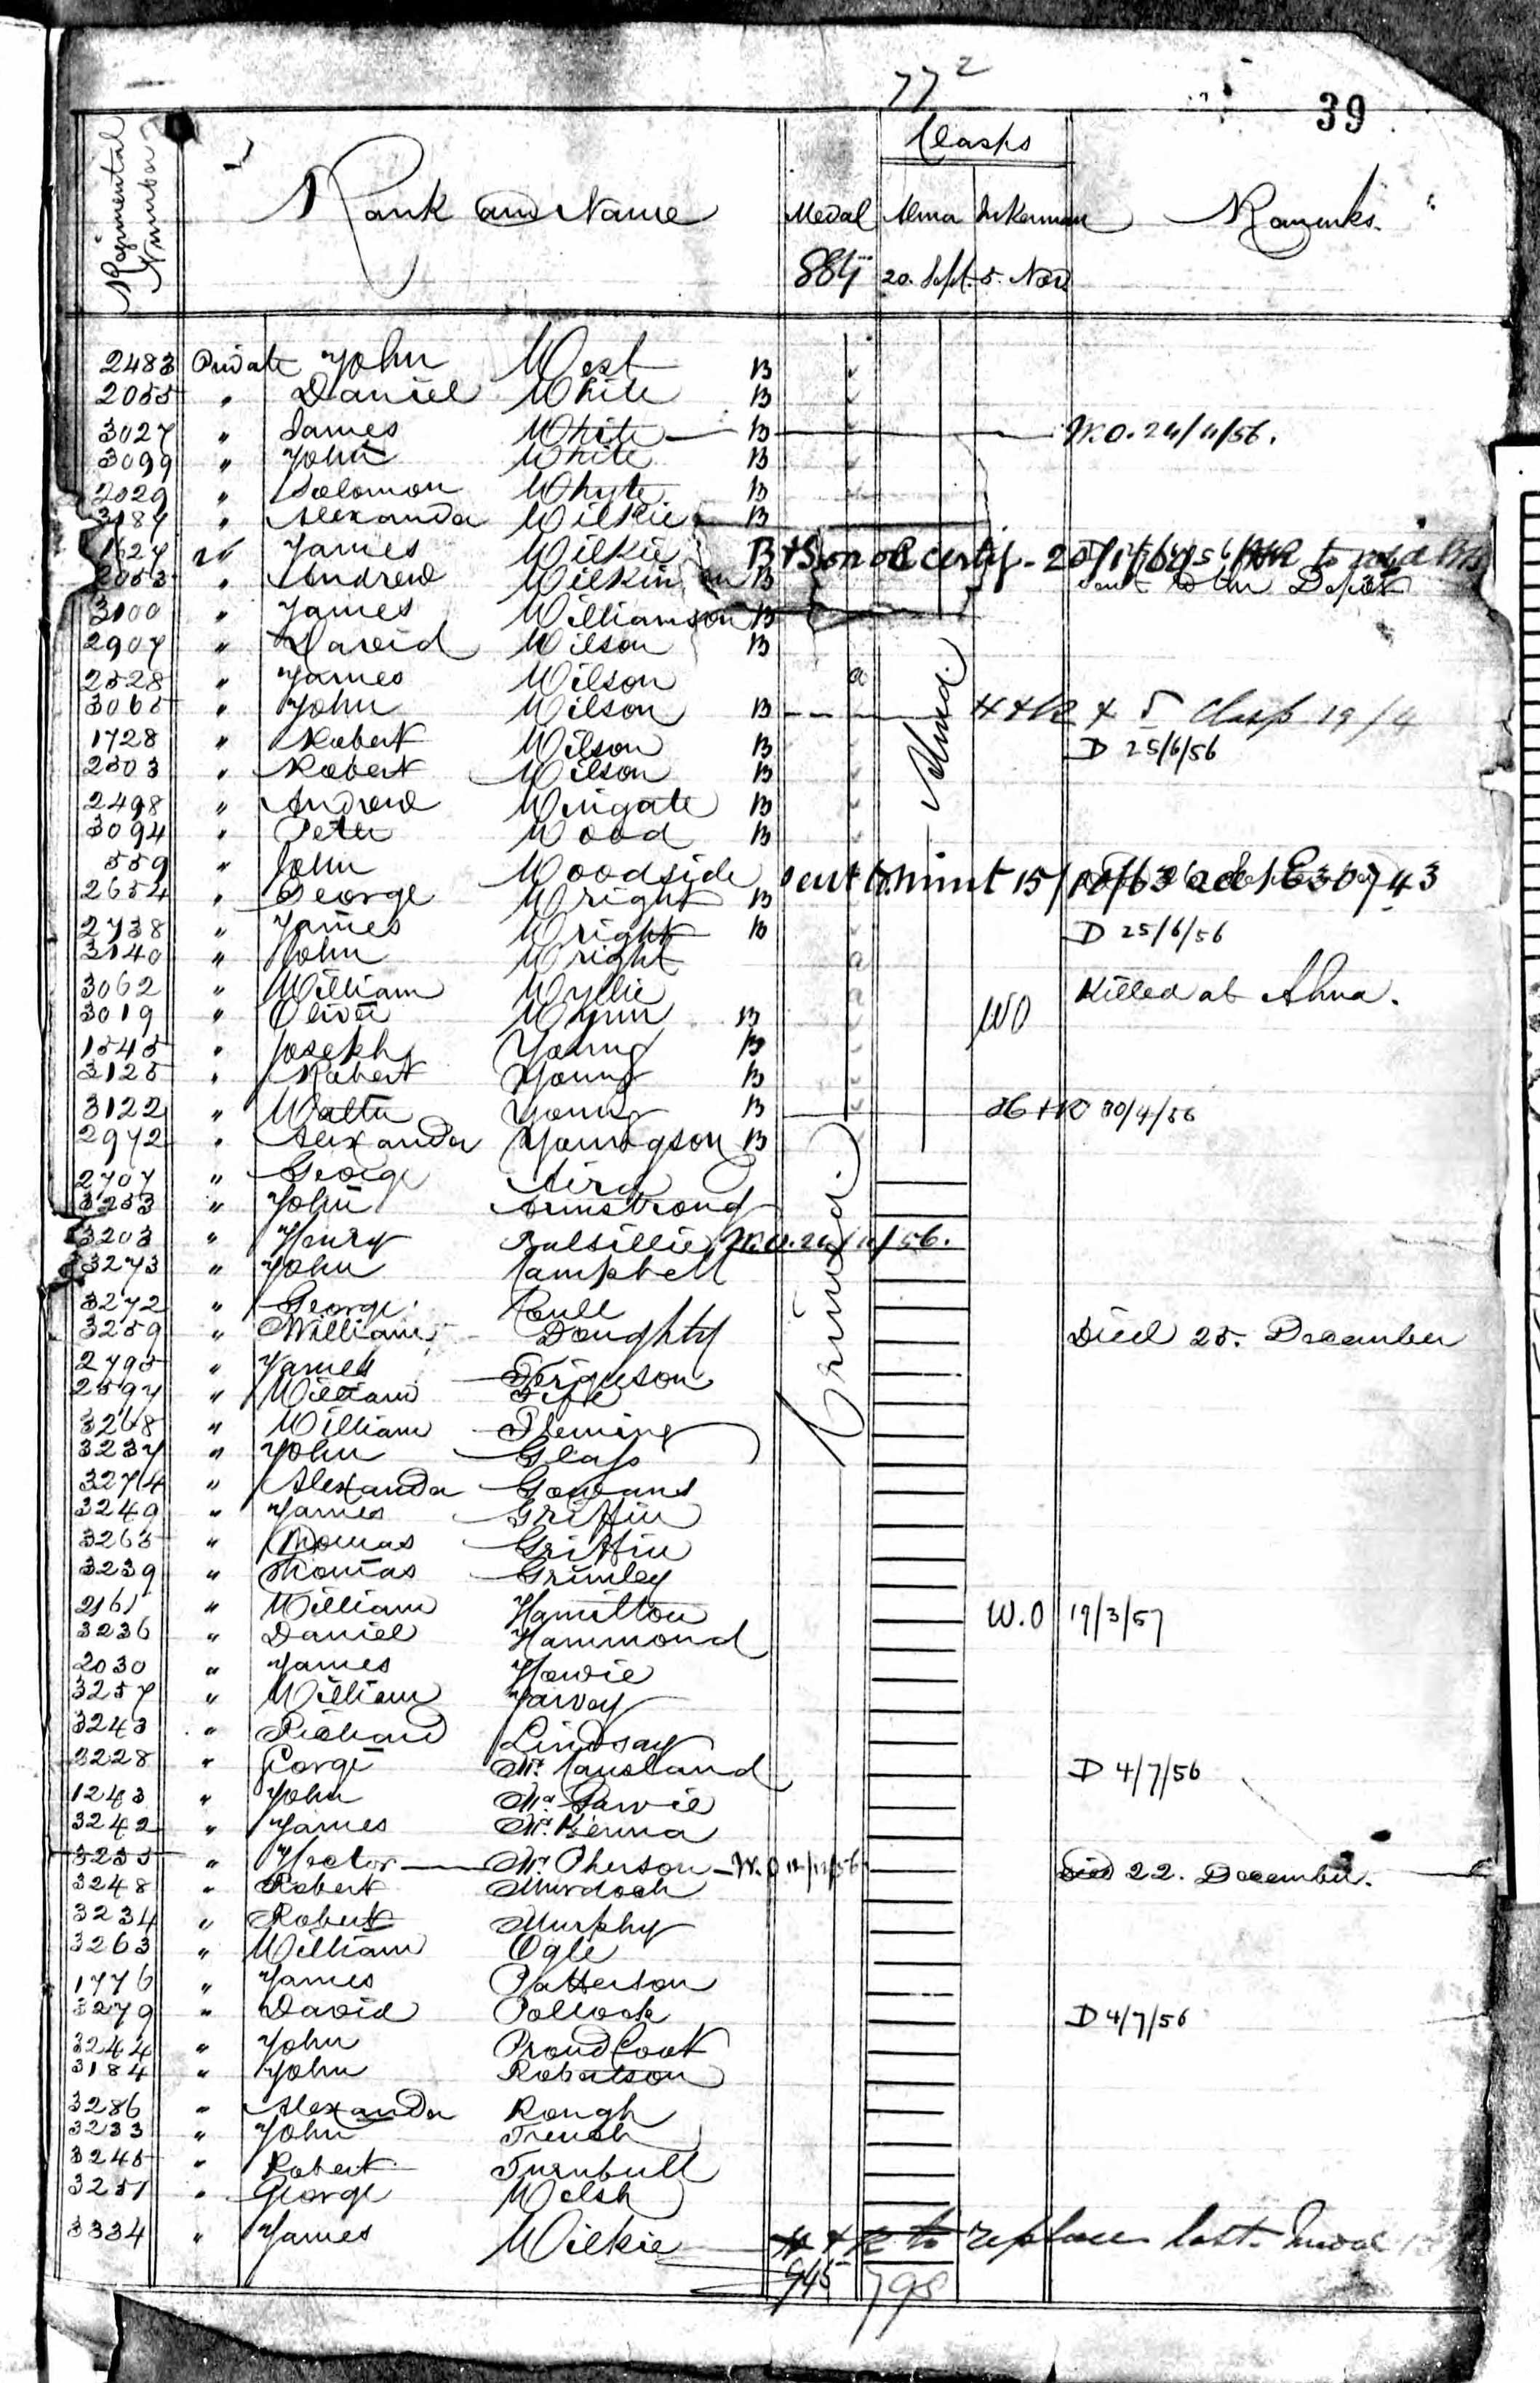 77 2
39
Clasps
Regimental Number
Rank and Name
Medal Alma Inkerman Remarks.
20. Sept. 5. Nov
2483 Private John West B
2055 " Daniel White B
3027 " James White B W.O. 24/11/56.
3099 " John White B
2029 " Solomon Whyte B
3187 " Alexander Wilkie B
James Wilkie
2053 " Andrew Wilkinson B sent to the Depot
3100 " James Williamson B
2907 " David Wilson B
2528 " James Wilson a
3065 " John Wilson B Clasp 19/4
1728 " Robert Wilson B D 25/6/56
2303 " Robert Wilson B
2498 " Andrew Wingate B
3094 " Peter Wood B
559 " John Woodside sent to mint 15/
2654 " George Wright B
2738 " James Wright B D 25/6/56
3140 " John Wright a
3062 " William Wyllie a Killed at Alma.
3019 " Oliver Wynn B WO
1545 " Joseph Young B
3125 " Robert Young B
3122 " Walter Young B 30/4/56
2972 " Alexander Youngson B
Alma.
2707 " George Aird
3253 " John Armstrong
3203 " Henry Balsillie W.O. 24/11/56.
3273 " John Campbell
3272 " George Coull
3259 " William Doughty Died 25. December
2795 " James Ferguson
2597 " William Fife
3268 " William Fleming
3237 " John Glass
3274 " Alexander Gowans
3249 " James Griffin
3265 " Thomas Griffin
3239 " Thomas Grimley
2161 " William Hamilton W.O 19/3/57
3236 " Daniel Hammond
2030 " James Howie
3257 " William Jarvey
3243 " Richard Lindsay
3228 " George McCausland D 4/7/56
1243 " John McGarvie
3242 " James McKenna
3255 " Hector McPherson W.O 12/11/56 Died 22. December.
3248 " Robert Murdoch
3234 " Robert Murphy
3263 " William Ogle
1776 " James Patterson
3279 " David Pollock D 4/7/56
3244 " John Proudfoot
3184 " John Robertson
3286 " Alexander Rough
3233 " John Trench
3245 " Robert Turnbull
3251 " George Welsh
3334 " James Wilkie to replace lost medal
Crimea.
945 798